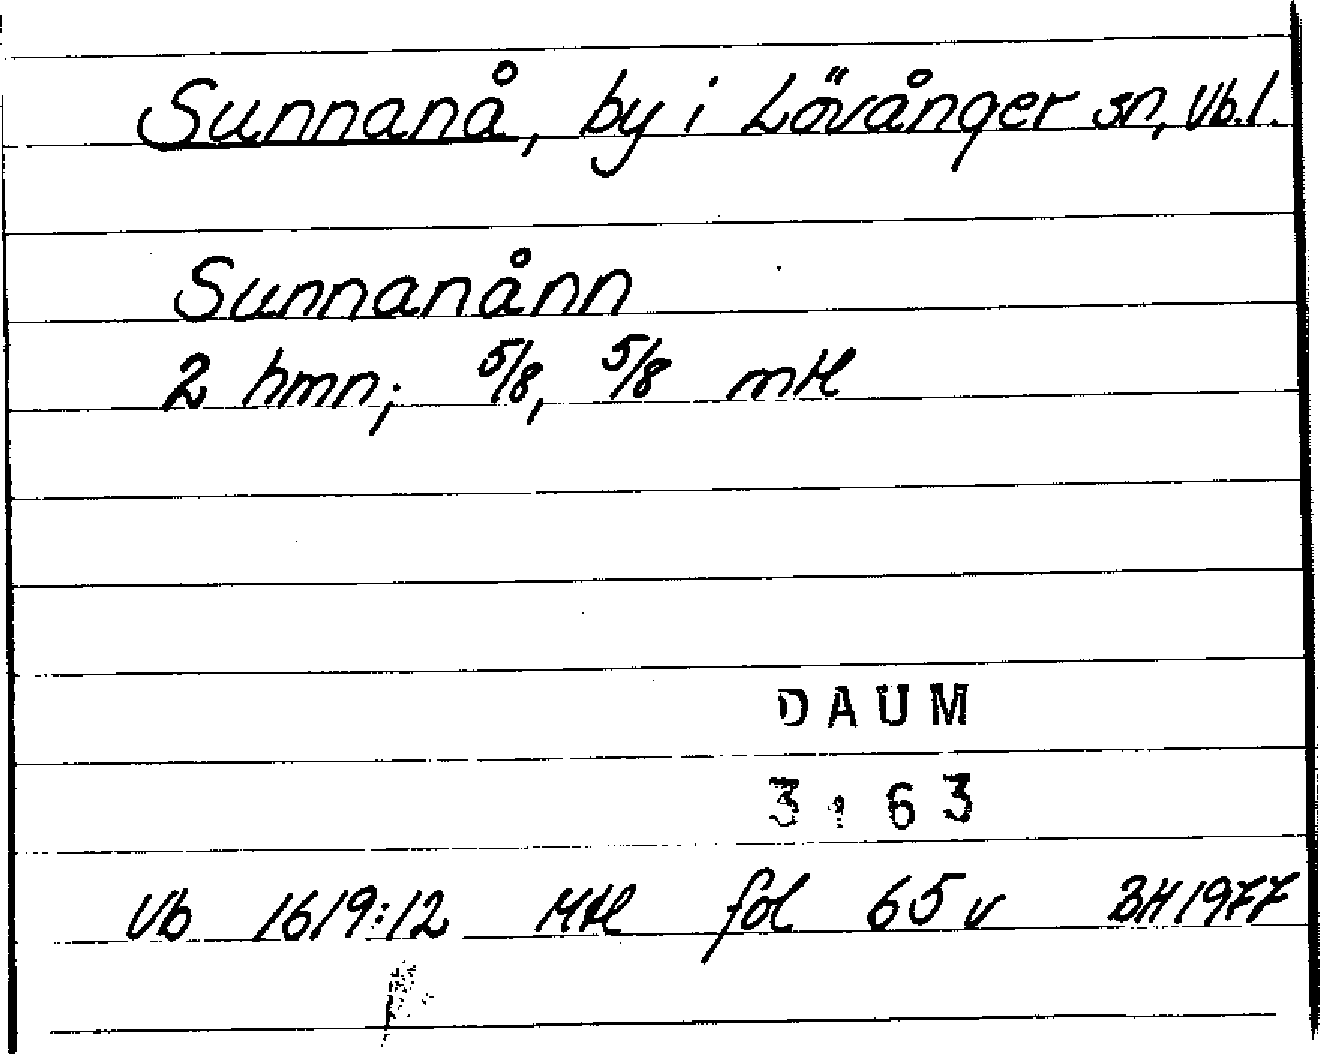 Sunnanå, by i Lövånger sn, Vb.l.
Sunnanånn
2 hmn; 5/8, 5/8 mtl
DAUM
3:63
Vb 1619:12 Mtl fol 65 v BH 1977